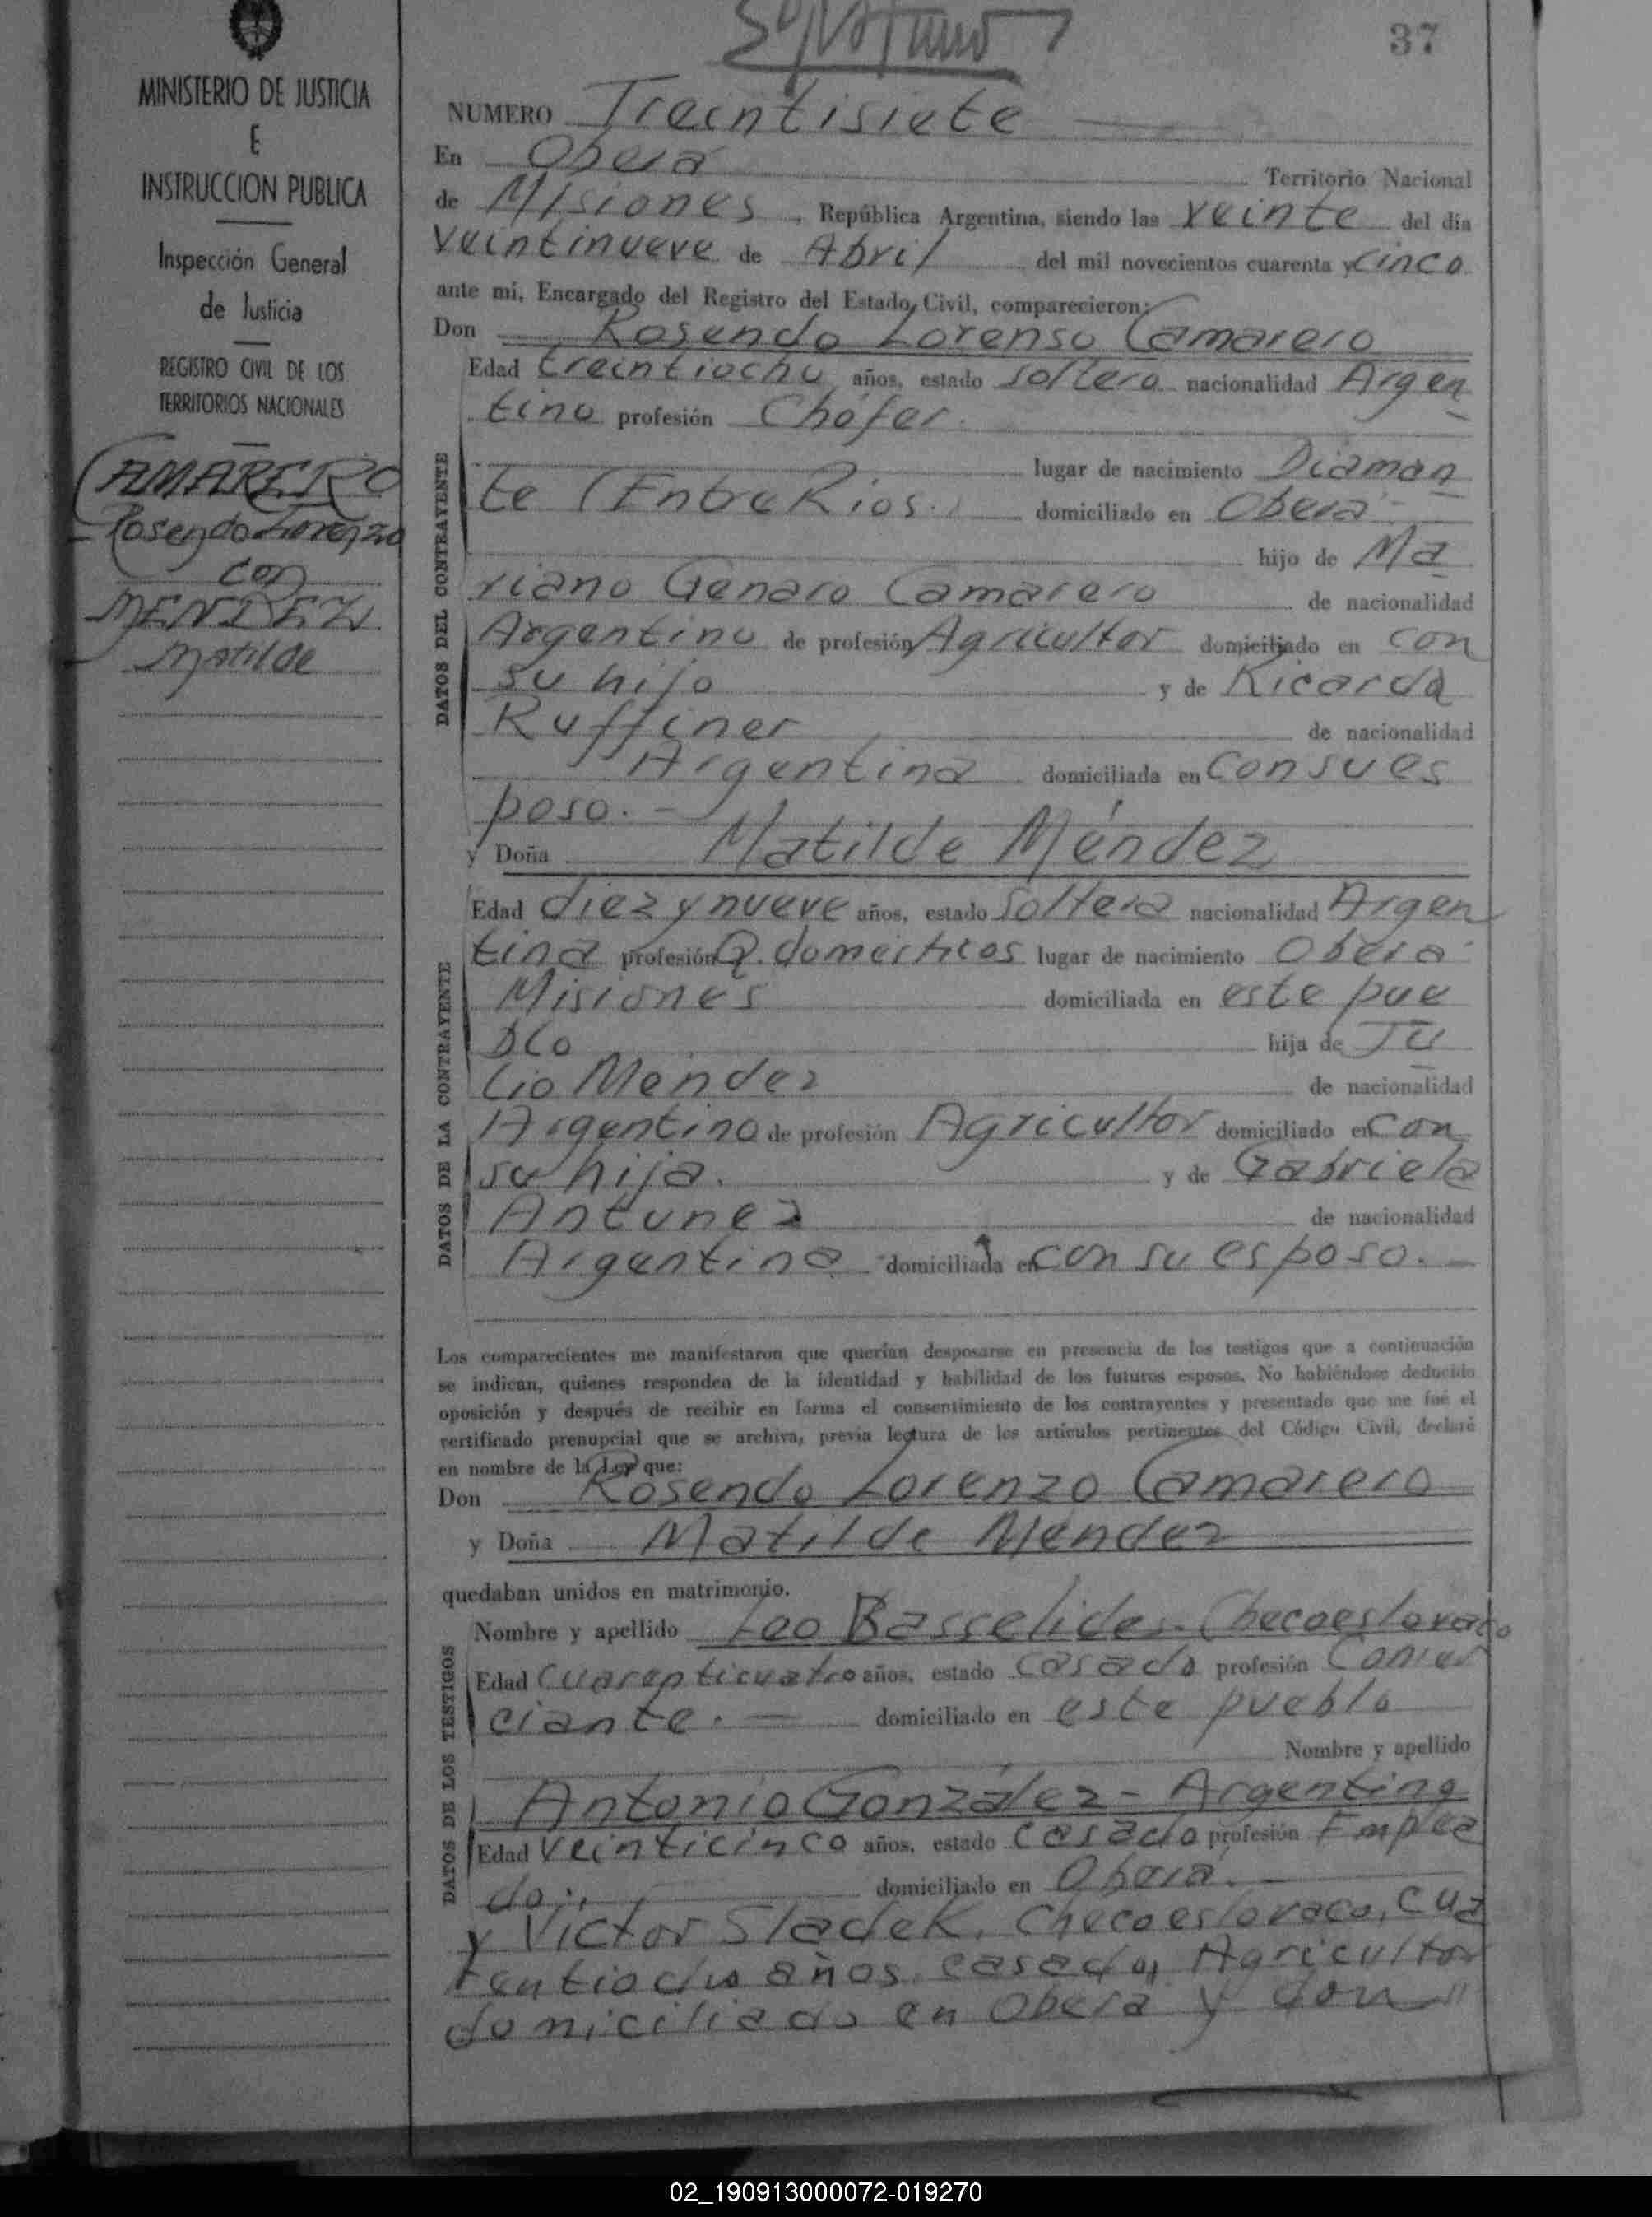 37
MINISTERIO DE JUSTICIA
E
INSTRUCCION PUBLICA
Inspección General
de Justicia
REGISTRO CIVIL DE LOS
TERRITORIOS NACIONALES
CAMARERO
Rosendo Lorenzo
con
MENDEZ
Matilde
NUMERO Treintisiete
En Oberá Territorio Nacional
de Misiones, República Argentina, siendo las veinte del día
veintinueve de Abril del mil novecientos cuarenta y cinco
ante mí, Encargado del Registro del Estado Civil, comparecieron:
Don Rosendo Lorenso Camarero
DATOS DEL CONTRAYENTE
Edad treintiocho años, estado soltero nacionalidad Argen
tino profesión Chófer.
lugar de nacimiento Diaman
te (Entre Rios.) domiciliado en Oberá
hijo de Ma
riano Genaro Camarero de nacionalidad
Argentino de profesión Agricultor domiciliado en con
su hijo y de Ricarda
Ruffiner de nacionalidad
Argentina domiciliada en con su es
poso. -
y Doña Matilde Méndez
DATOS DE LA CONTRAYENTE
Edad diez y nueve años, estado Soltera nacionalidad Argen
tina profesión Q. domésticos lugar de nacimiento Oberá
Misiones domiciliada en este pue
blo hija de Ju
lio Mendez de nacionalidad
Argentino de profesión Agricultor domiciliado en con
su hija. y de Gabriela
Antunez de nacionalidad
Argentina domiciliada en con su esposo. -
Los comparecientes me manifestaron que querían desposarse en presencia de los testigos que a continuación
se indican, quienes responden de la identidad y habilidad de los futuros esposos. No habiéndose deducido
oposición y después de recibir en forma el consentimiento de los contrayentes y presentado que me fué el
certificado prenupcial que se archiva, previa lectura de los artículos pertinentes del Código Civil, declaré
en nombre de la Ley que:
Don Rosendo Lorenzo Camarero
y Doña Matilde Méndez
quedaban unidos en matrimonio.
DATOS DE LOS TESTIGOS
Nombre y apellido Leo Basselides - Checoeslovaco
Edad Cuarenticuatro años, estado casado profesión Comer
ciante. - domiciliado en este pueblo
Nombre y apellido
Antonio González - Argentino
Edad veinticinco años, estado casado profesión Emplea
do. domiciliado en Oberá. -
y Victor Sladek, Checoeslovaco, cua
rentiocho años, casado, Agricultor
domiciliado en Oberá y don
02_190913000072-019270